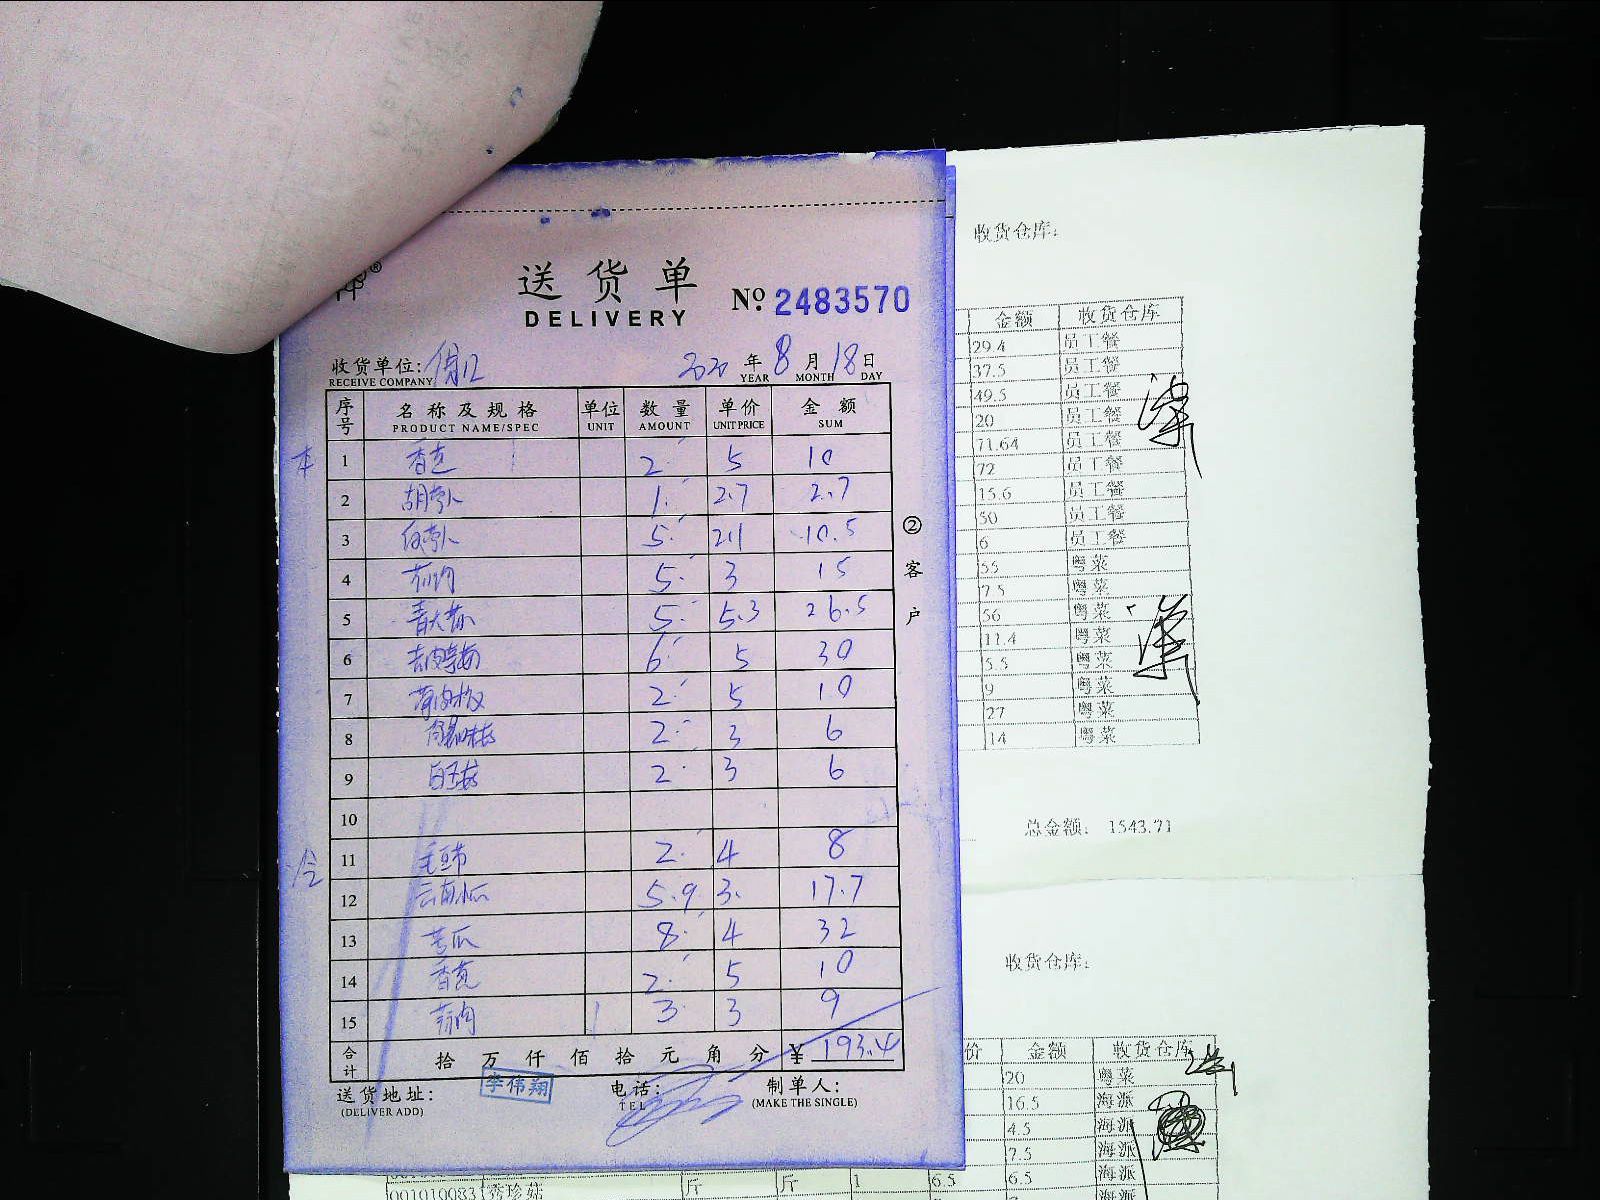 送货单
DELIVERY
№ 2483570
收货单位:
RECEIVE COMPANY
2020 年 8 月 18 日
YEAR MONTH DAY
序号 名称及规格 单位 数量 单价 金额
PRODUCT NAME/SPEC UNIT AMOUNT UNIT PRICE SUM
本 1 香芫 2 5 10
2 胡萝卜 1 2.7 2.7
3 白萝卜 5 2.1 10.5
4 5 3 15
5 青大椒 5 5.3 26.5
6 6 5 30
7 2 5 10
8 2 3 6
9 白玉菇 2 3 6
10
冷 11 毛豆节 2 4 8
12 云南小瓜 5.9 3 17.7
13 苦瓜 8 4 32
14 香芫 2 5 10
15 3 3 9
合计 拾 万 仟 佰 拾 元 角 分 ¥ 193.4
送货地址:
(DELIVER ADD)
李伟翔
电话:
TEL
制单人:
(MAKE THE SINGLE)
②客户
收货仓库:
金额 收货仓库
29.4 员工餐
37.5 员工餐
49.5 员工餐
20 员工餐
71.64 员工餐
72 员工餐
15.6 员工餐
50 员工餐
6 员工餐
55 粤菜
7.5 粤菜
56 粤菜
11.4 粤菜
5.5 粤菜
9 粤菜
27 粤菜
14 粤菜
总金额: 1543.71
收货仓库:
价 金额 收货仓库
20 粤菜
16.5 海派
4.5 海派
7.5 海派
6.5 海派
001010083 秀珍菇 斤 斤 1 6.5